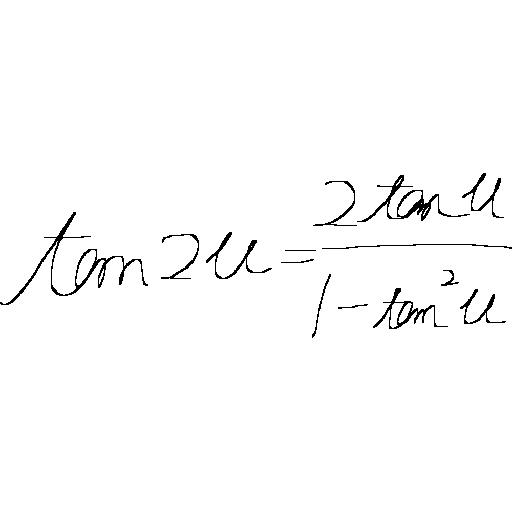 tan 2u = \frac{2 tan u}{1 - tan^2 u}